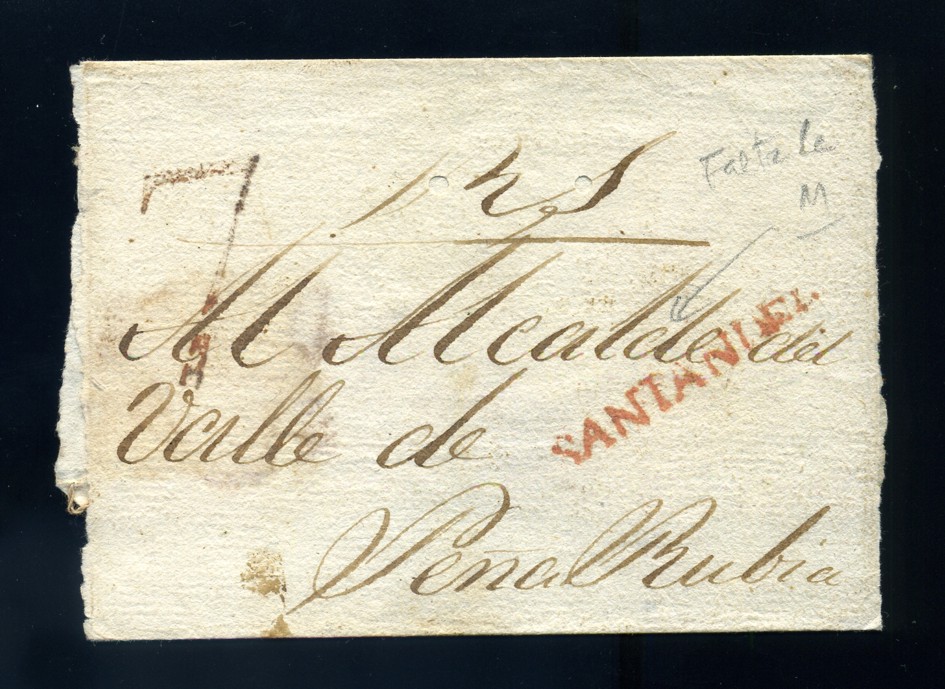 Falta la
M
Al Alcalde del
SANTANDER
Valle de
Peña Rubia